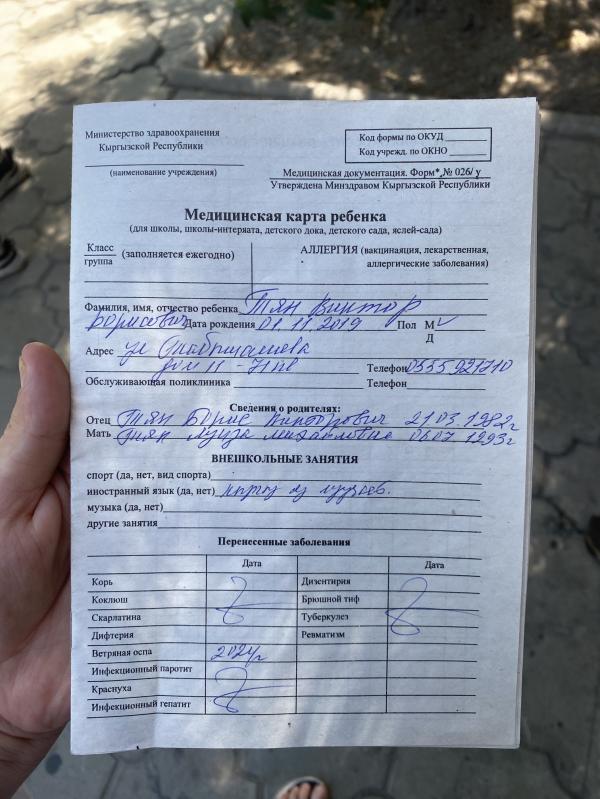 Министерство здравоохранения
Кыргызской Республики
(наименование учреждения)
Код формы по ОКУД
Код учрежд. по ОКНО
Медицинская документация. Форм*,№ 026/ у
Утверждена Минздравом Кыргызской Республики
Медицинская карта ребенка
(для школы, школы-интерната, детского дока, детского сада, яслей-сада)
Класс
группа
(заполняется ежегодно)
АЛЛЕРГИЯ (вакцинаяция, лекарственная,
аллергические заболевания)
Фамилия, имя, отчество ребенка Тян Виктор
Борисович Дата рождения 01.11.2019 Пол М
Д
Адрес ул
дом 11 - 71 кв Телефон 0555921710
Обслуживающая поликлиника Телефон
Сведения о родителях:
Отец Тян Борис Викторович 21.03.1982г
Мать Тян Луиза Михайловна 06.07.1993г
ВНЕШКОЛЬНЫЕ ЗАНЯТИЯ
спорт (да, нет, вид спорта)
иностранный язык (да, нет)
музыка (да, нет)
другие занятия
Перенесенные заболевания
Дата Дата
Корь Дизентирия
Коклюш Брюшной тиф
Скарлатина Туберкулез
Дифтерия Ревматизм
Ветряная оспа 2024г
Инфекционный паротит
Краснуха
Инфекционный гепатит